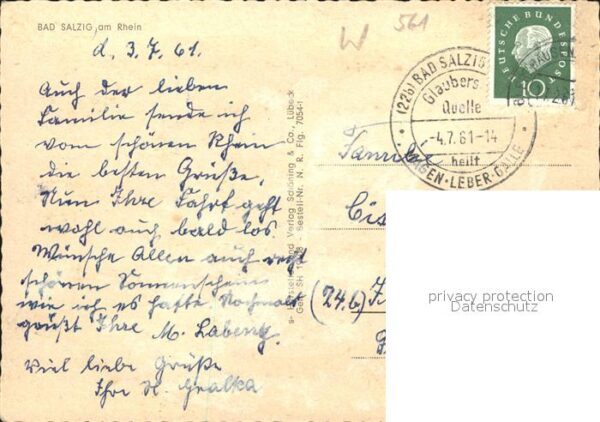 BAD SALZIG am Rhein
d. 3.7.61.
Auch der lieben
Familie sende ich
vom schönen Rhein
die besten Grüße,
Nun Ihre Fahrt geht
wohl auch bald los.
Wünsche Allen auch recht
schönen Sonnenschein
wie ich es hatte Nochmals
grüßt Ihre M.
Viel liebe Grüße
Ihre
W 561
DEUTSCHE BUNDESPOST
10
(22b) BAD SALZIG
Glaubers
Quelle
-4.7.61-14
heilt
MAGEN-LEBER-GALLE
Familie
(24b)
Verlag Schöning & Co., Lübeck
Bestell-Nr. N. R. Flg. 7054-1
privacy protection
Datenschutz